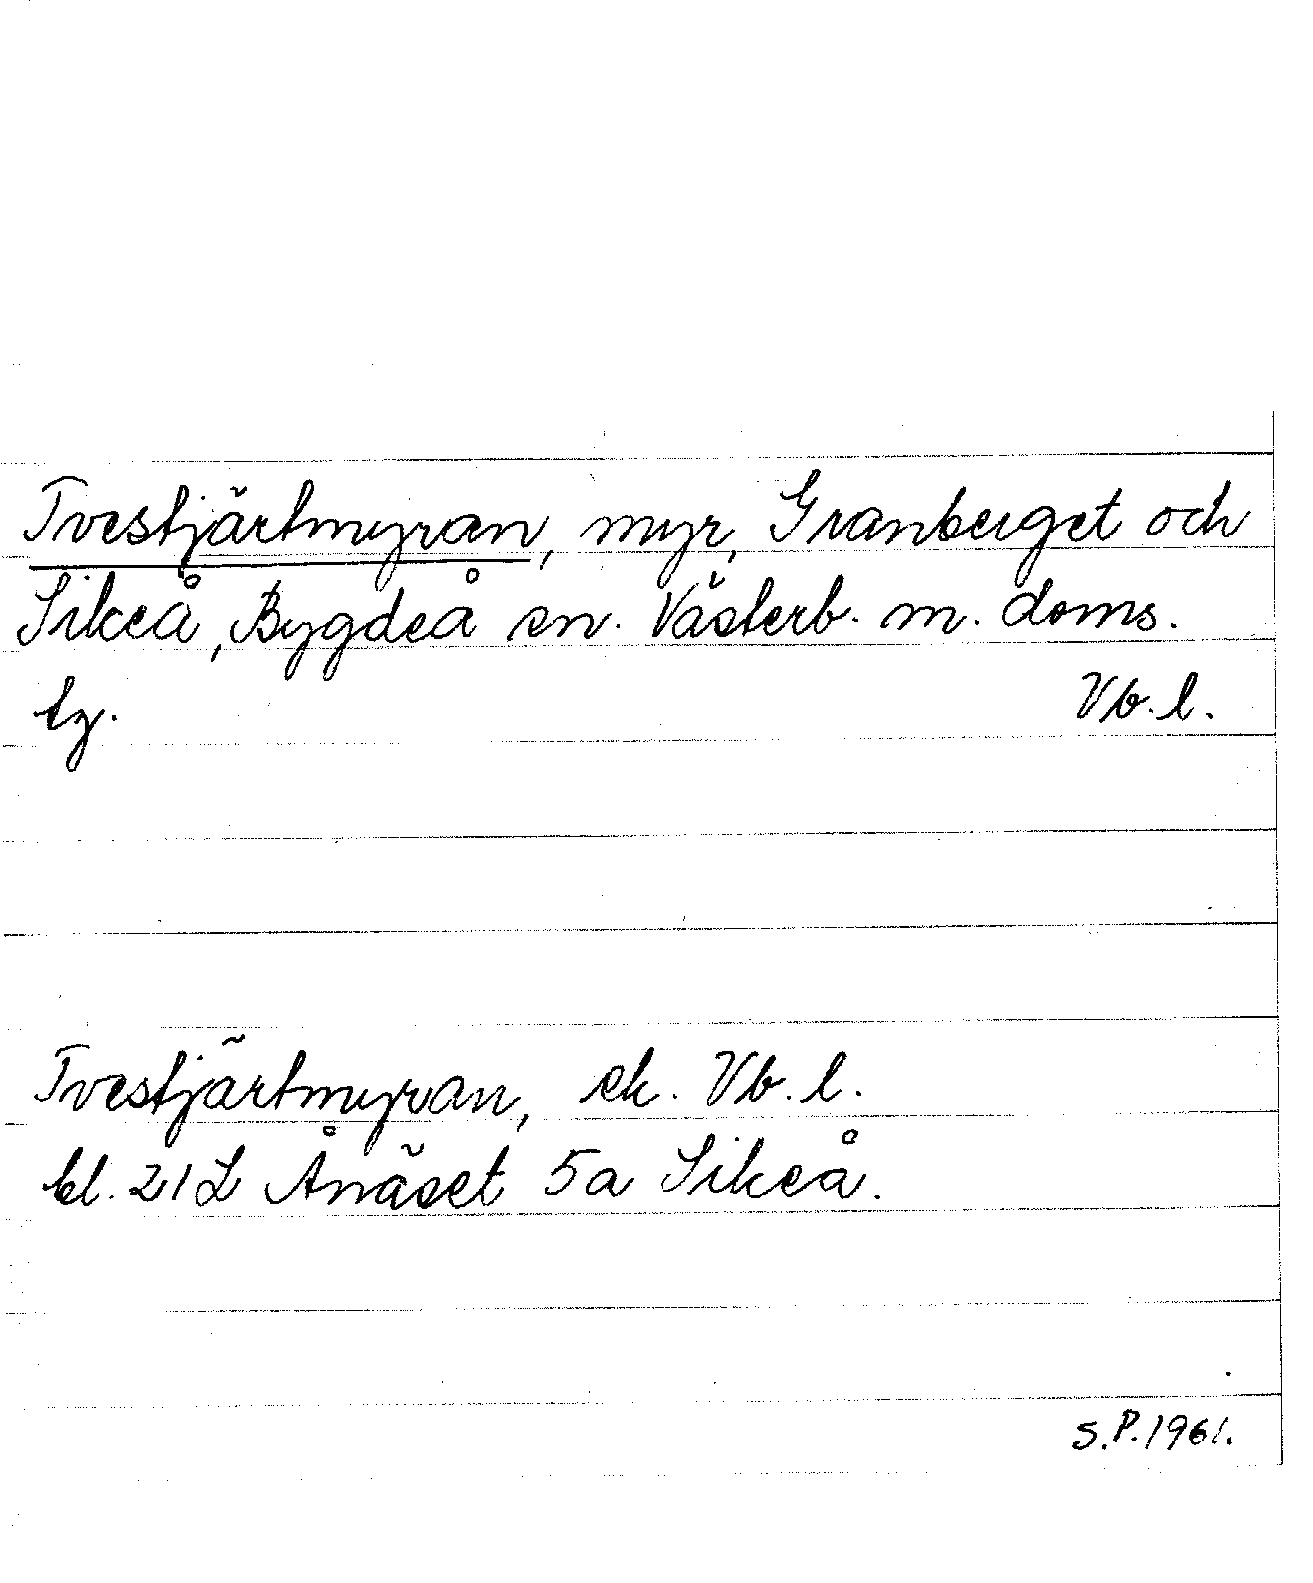 Tvestjärtmyran, myr, Granberget och
Sikeå, Bygdeå sn. Västerb. m. doms.
tz. Vb. l.
Tvestjärtmyran, ek. Vb. l.
bl. 21L Ånäset 5a Sikeå.
S.P. 1961.